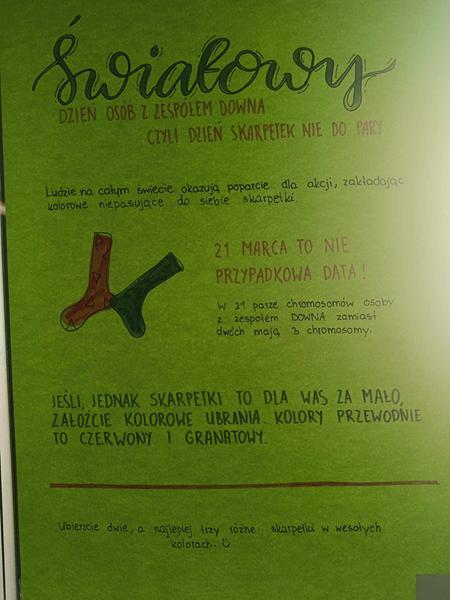 Światowy
DZIEŃ OSÓB Z ZESPOŁEM DOWNA
CZYLI DZIEŃ SKARPETEK NIE DO PARY
Ludzie na całym świecie okazują poparcie dla akcji, zakładając
kolorowe niepasujące do siebie skarpetki.
21 MARCA TO NIE
PRZYPADKOWA DATA!
W 21 parze chromosomów osoby
z zespołem DOWNA zamiast
dwóch mają 3 chromosomy.
JEŚLI, JEDNAK SKARPETKI TO DLA WAS ZA MAŁO,
ZAŁÓŻCIE KOLOROWE UBRANIA. KOLORY PRZEWODNIE
TO CZERWONY I GRANATOWY.
Ubierzcie dwie, a najlepiej trzy różne skarpetki w wesołych
kolorach. ☺